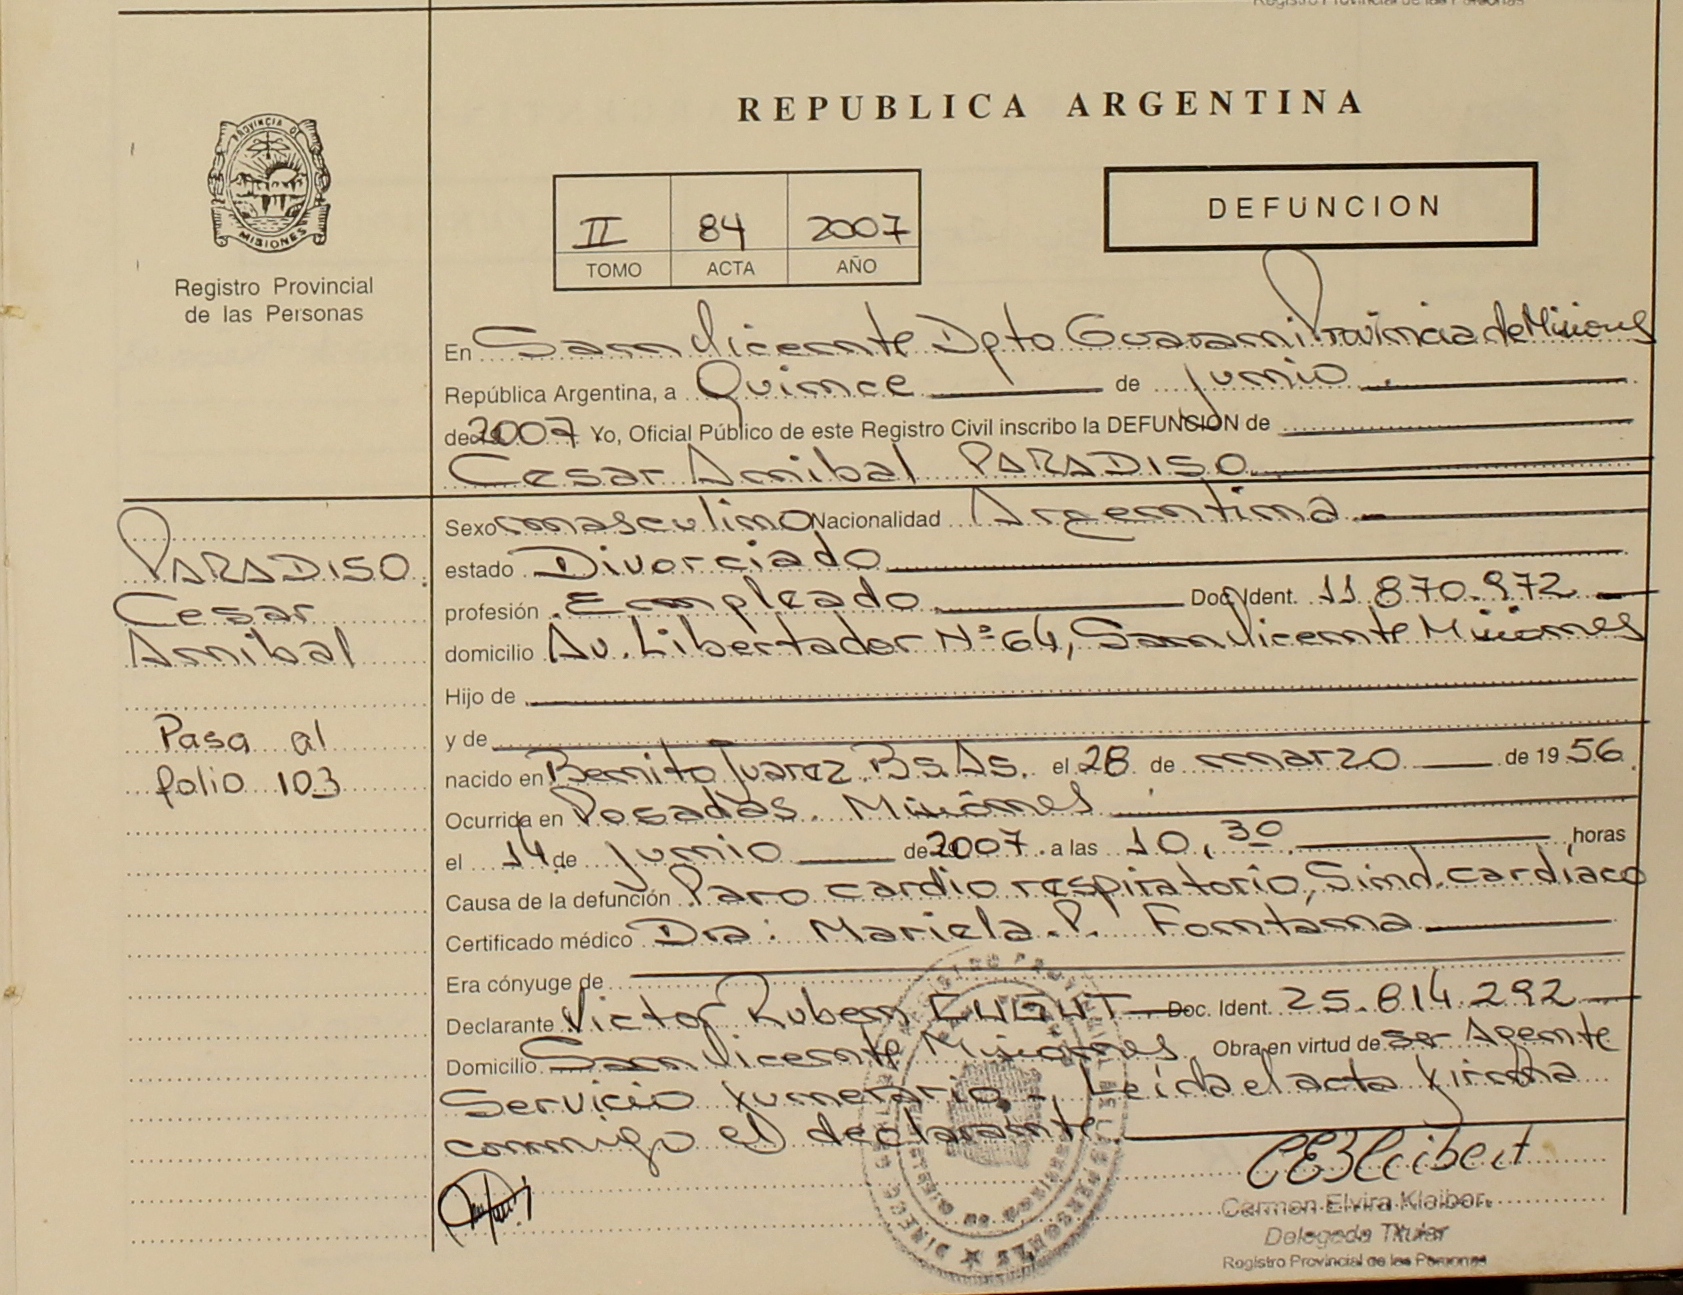 Registro Provincial de las Personas
REPUBLICA ARGENTINA
PROVINCIA DE
MISIONES
Registro Provincial
de las Personas
II 84 2007
TOMO ACTA AÑO
DEFUNCION
En San Vicente Dpto Guarani Provincia de Misiones
República Argentina, a Quince de junio
de 2007 Yo, Oficial Público de este Registro Civil inscribo la DEFUNCION de
Cesar Anibal PARADISO
PARADISO
Cesar
Anibal
Pasa al
folio 103
Sexo masculino Nacionalidad Argentina
estado Divorciado
profesión Empleado Doc. Ident. 11.870.972
domicilio Av. Libertador Nº 64, San Vicente Misiones
Hijo de
y de
nacido en Benito Juarez Bs. As. el 28 de marzo de 1956
Ocurrida en Posadas. Misiones
el 14 de junio de 2007 a las 10,30 horas
Causa de la defunción Paro cardio respiratorio, Sind. cardíaco
Certificado médico Dra: Mariela P. Fontana
Era cónyuge de
Declarante Victor Ruben Doc. Ident. 25.814.292
Domicilio San Vicente Misiones Obra en virtud de ser Agente
Servicio funerario. Leida el acta firma
conmigo el declarante.
Carmen Elvira Kleiber
Delegada Titular
Registro Provincial de las Personas